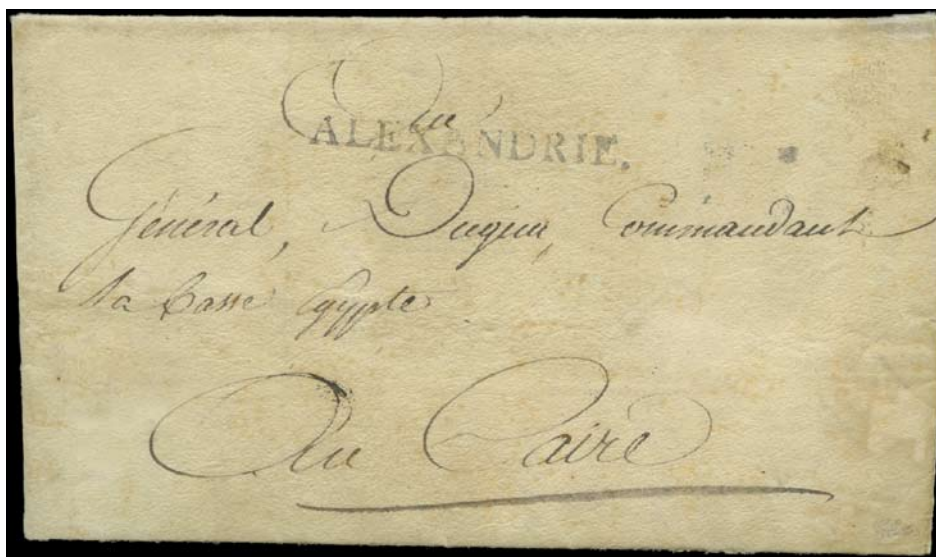 Au
ALEXANDRIE.
Général, Dugua, Commandant
la basse Egypte
Au Caire